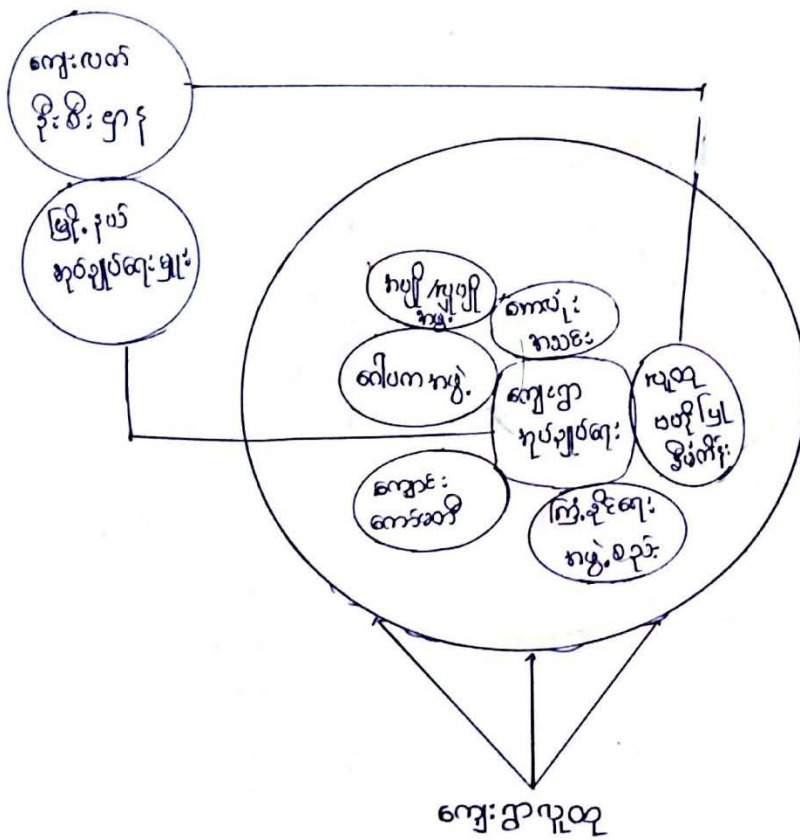 ကျေးလက်
ဦးစီးဌာန
မြို့နယ်
အုပ်ချုပ်ရေးမှူး
အပျို/လူပျို
အဖွဲ့
ကာလုံး
အသင်း
ဂေါပကအဖွဲ့
ကျေးရွာ
အုပ်ချုပ်ရေး
လူထု
ဗဟိုပြု
စီမံကိန်း
ကျောင်း
ကော်မတီ
ကြံ့ခိုင်ရေး
အဖွဲ့စည်း
ကျေးရွာလူထု